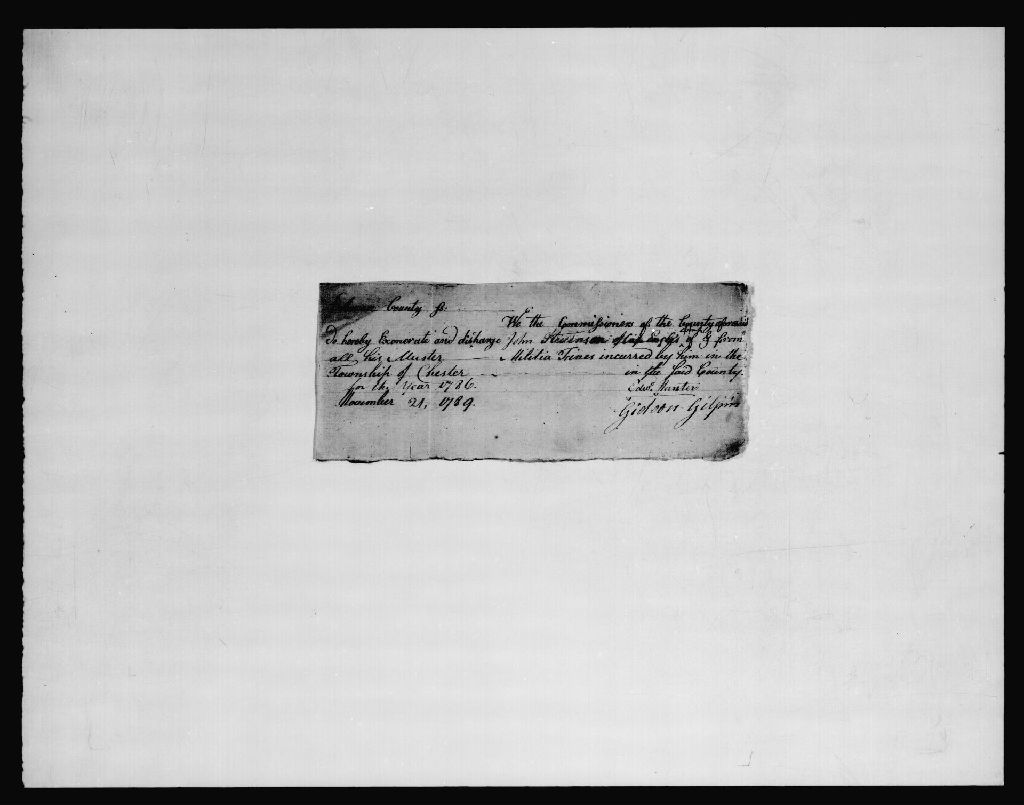 Delaware County ss.
We the Commissioners of the County aforesaid
Do hereby Exonerate and discharge John Stevenson of & from
all his Muster Militia Fines incurred by him in the
Township of Chester in the said County
for the Year 1786.
November 21, 1789.
Edwd. Hunter
Gideon Gilpin